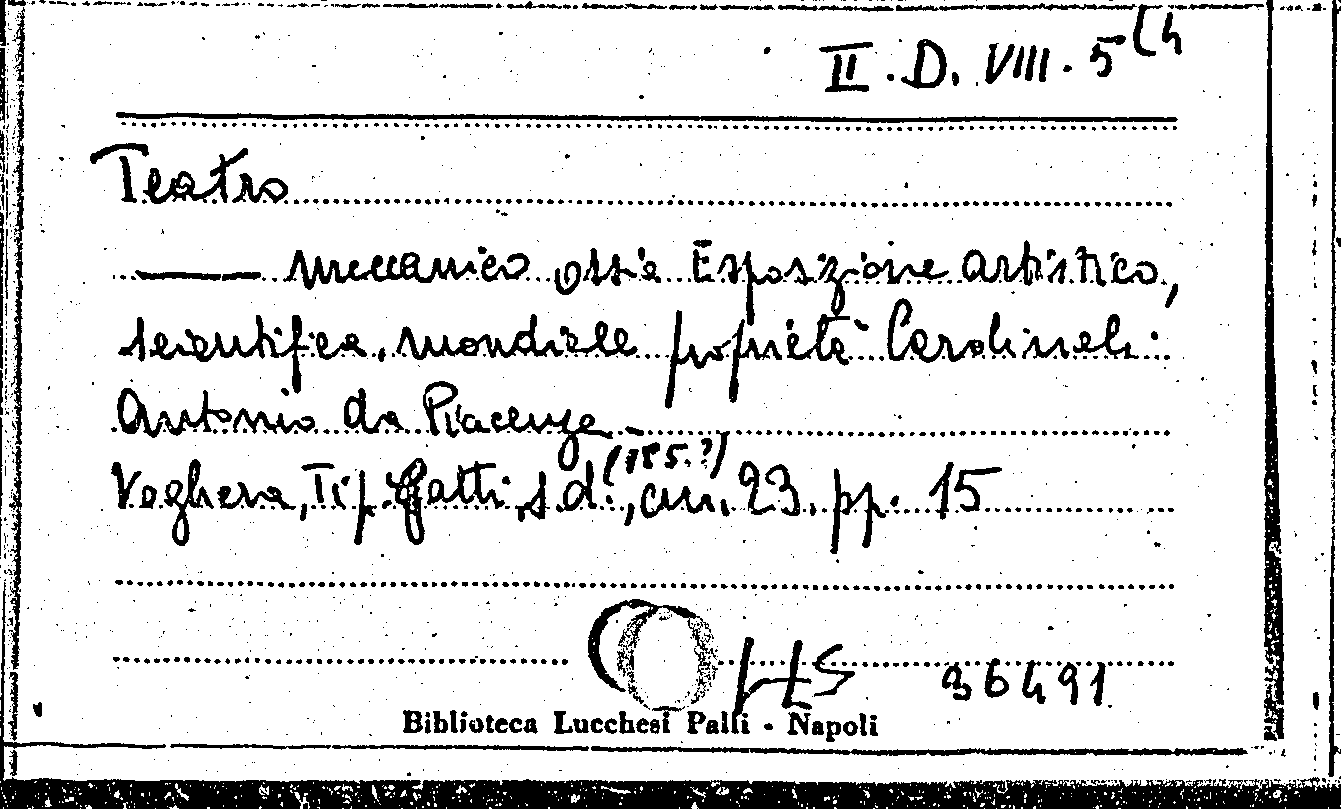 II. D. VIII. 5 (4
Teatro
——— meccanico ossia Esposizione artistico,
scientifica, mondiale proprietà Cardinali
Antonio da Piacenza -
Voghera, Tip. Gatti, s.d. (185.?), cm. 23. pp. 15
36491
Biblioteca Lucchesi Palli - Napoli